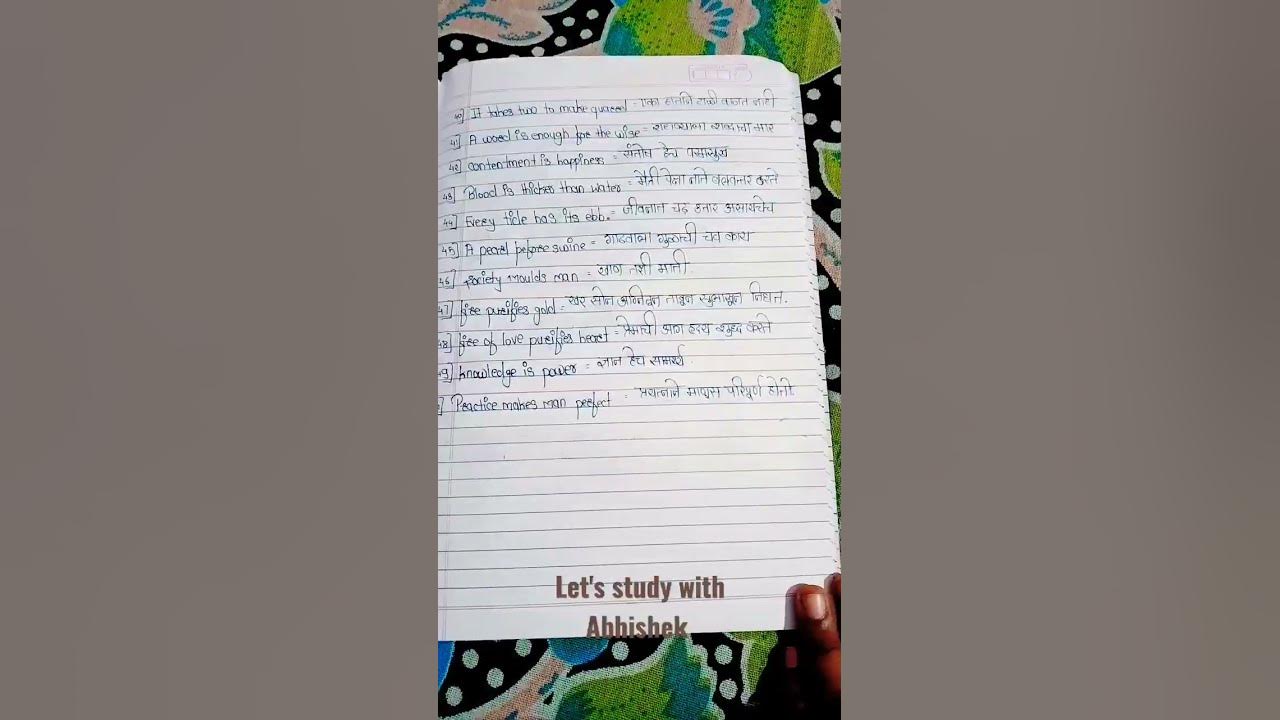 40] It takes two to make quarrel = एका हाताने टाळी वाजत नाही
41] A word is enough for the wise = शहाण्याला शब्दाचा मार
42] contentment is happiness = संतोष हेच परमसुख
43] Blood is thicker than water = मैत्री पेक्षा नाते बलवत्तर करते
44] Every tide has its ebb. = जीवनात चढ उतार असायचेच
45] A pearl before swine = गाढवाला गुळाची चव काय
46] society moulds man = खाण तशी माती
47] fire purifies gold = खर सोन अग्नितून निघत.
48] fire of love purifies heart = प्रेमाची आग हृदय शुद्ध करते
49] knowledge is power = ज्ञान हेच सामर्थ्य.
] Practice makes man perfect = प्रयत्नाने माणूस परिपूर्ण होतो.
Let's study with
Abhishek